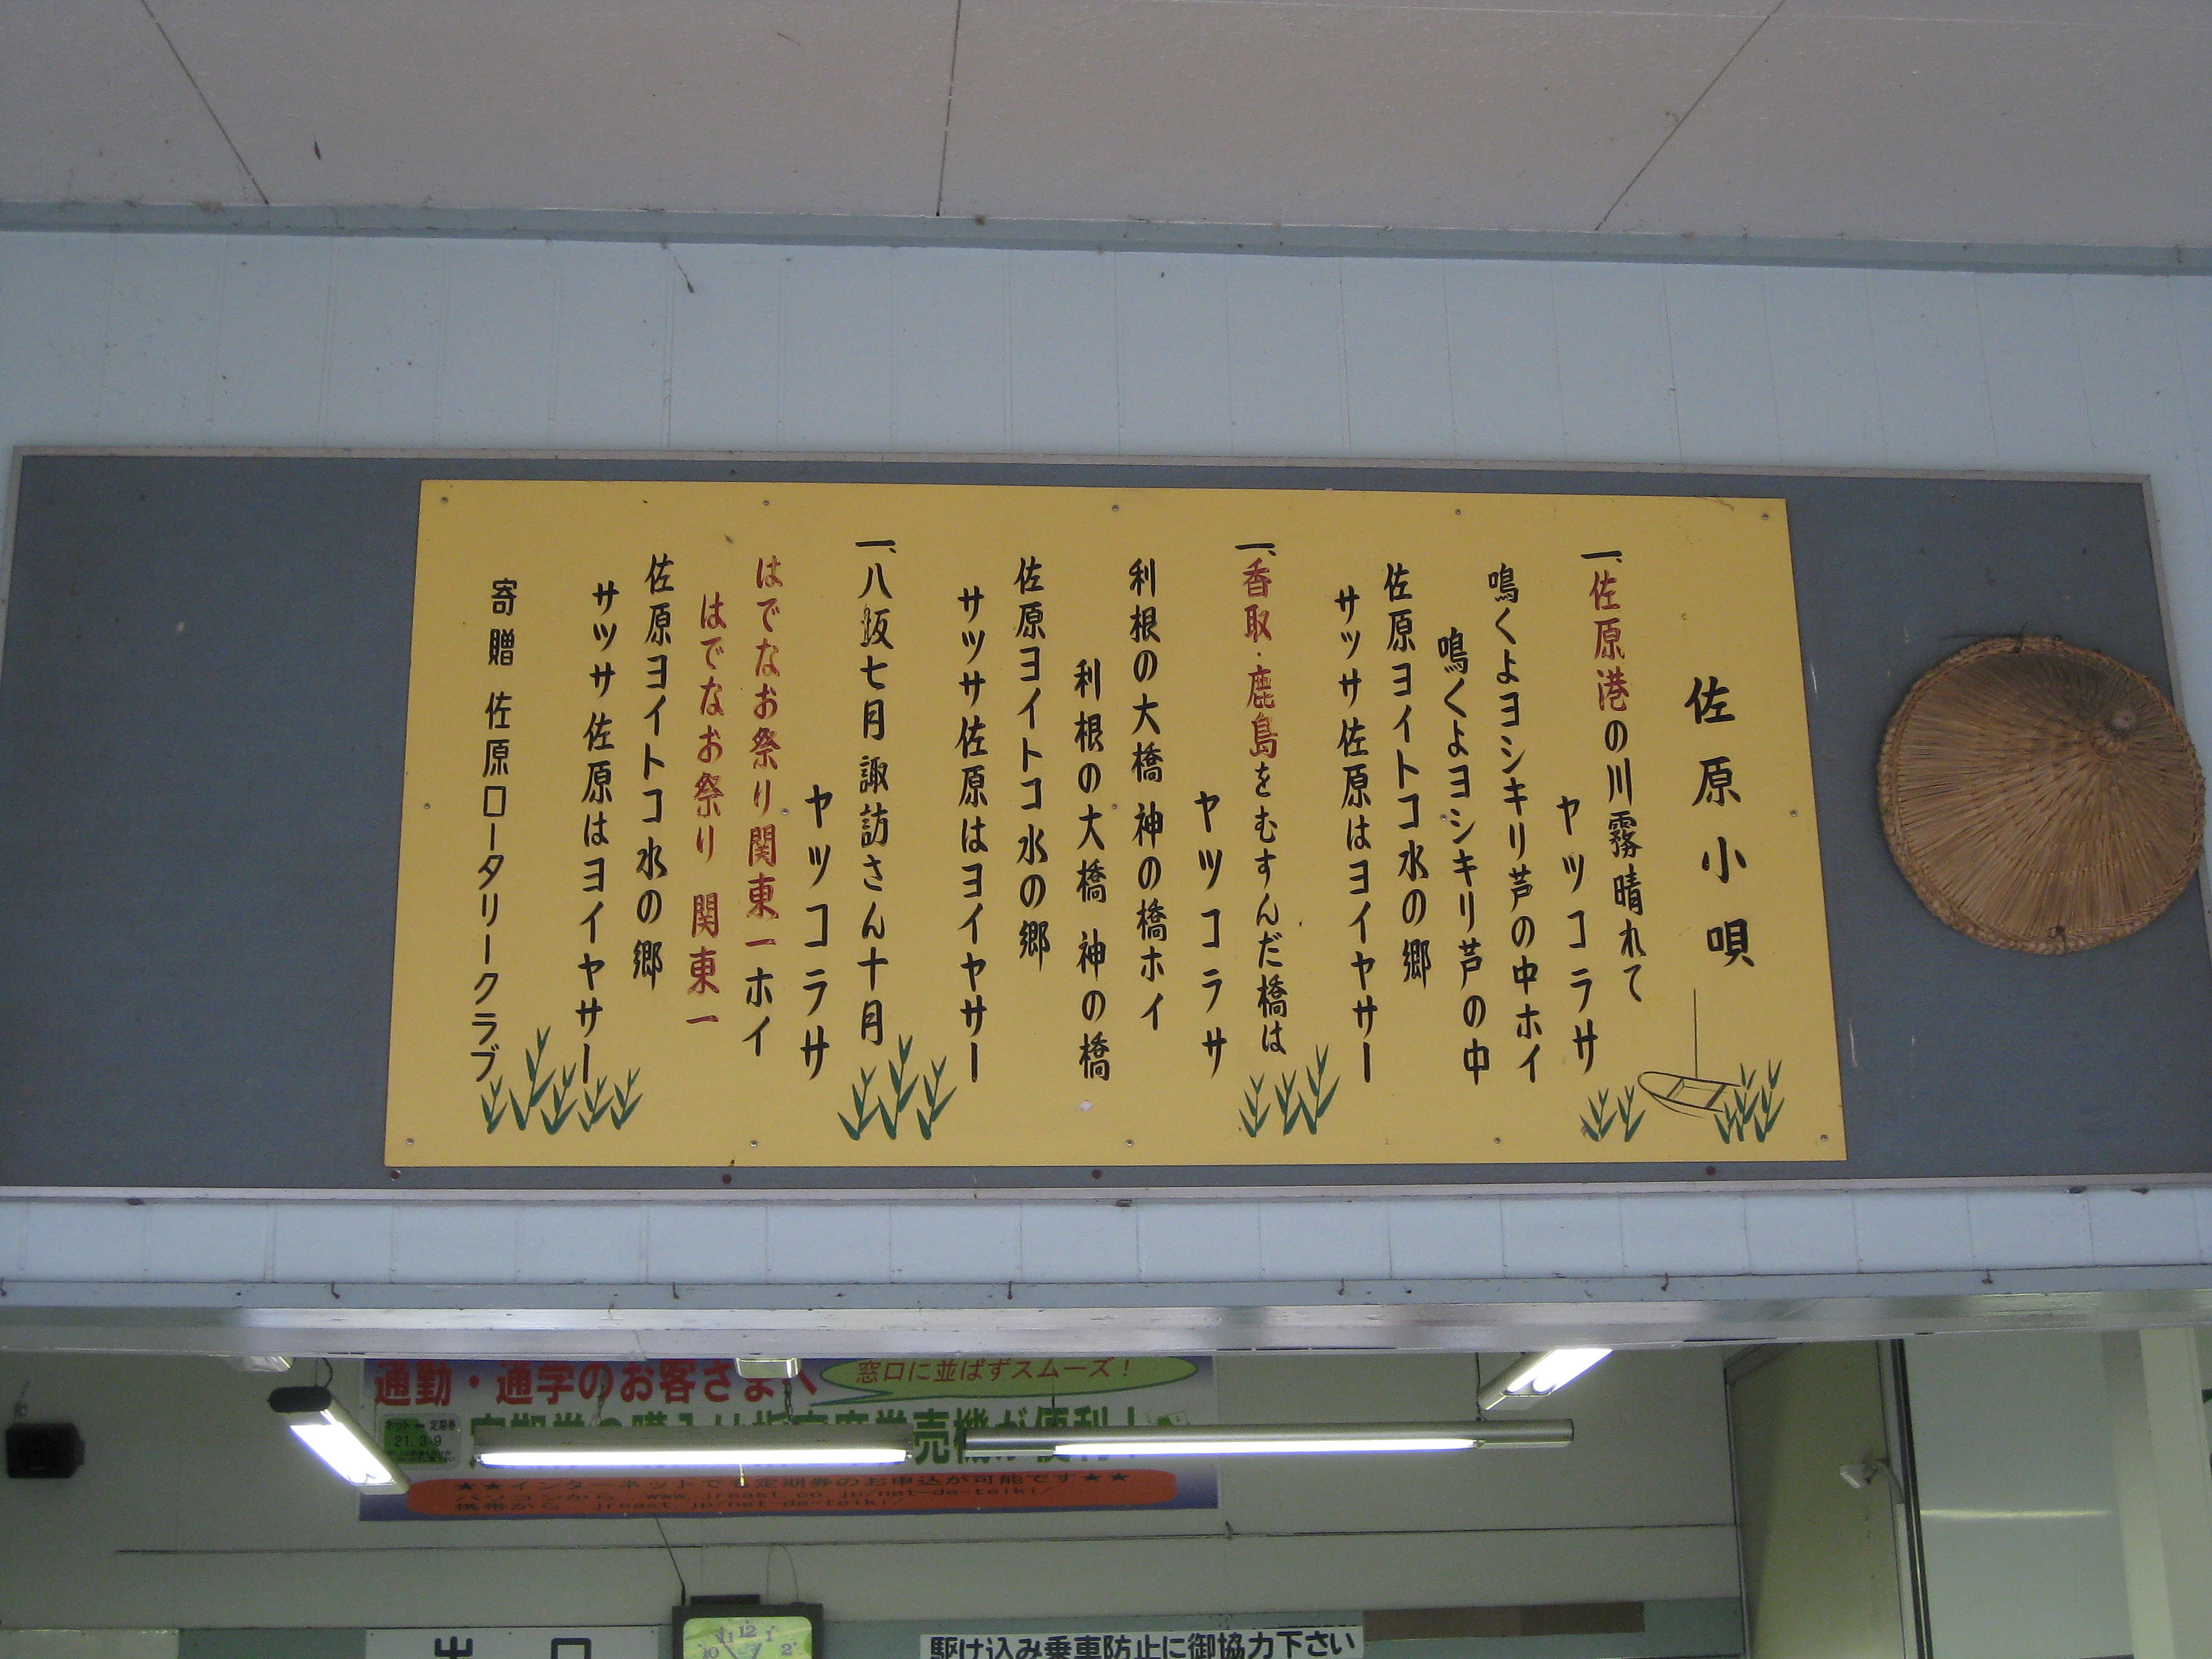 佐原小唄
一、佐原港の川霧晴れて
ヤッコラサ
鳴くよヨシキリ芦の中ホイ
鳴くよヨシキリ芦の中
佐原ヨイトコ水の郷
サッサ佐原はヨイヤサー
一、香取・鹿島をむすんだ橋は
ヤッコラサ
利根の大橋 神の橋ホイ
利根の大橋 神の橋
佐原ヨイトコ水の郷
サッサ佐原はヨイヤサー
一、八坂七月諏訪さん十月
ヤッコラサ
はでなお祭り関東一ホイ
はでなお祭り 関東一
佐原ヨイトコ水の郷
サッサ佐原はヨイヤサー
寄贈 佐原ロータリークラブ
通勤・通学のお客さまへ
窓口に並ばずスムーズ！
売機が便利！
21.3.9
★★インターネットで 定期券のお申込が可能です★★
パソコンから www.jreast.co.jp/net-de-teiki/
携帯から jreast.jp/net-de-teiki/
出口
10 11 12 1 2
駆け込み乗車防止に御協力下さい